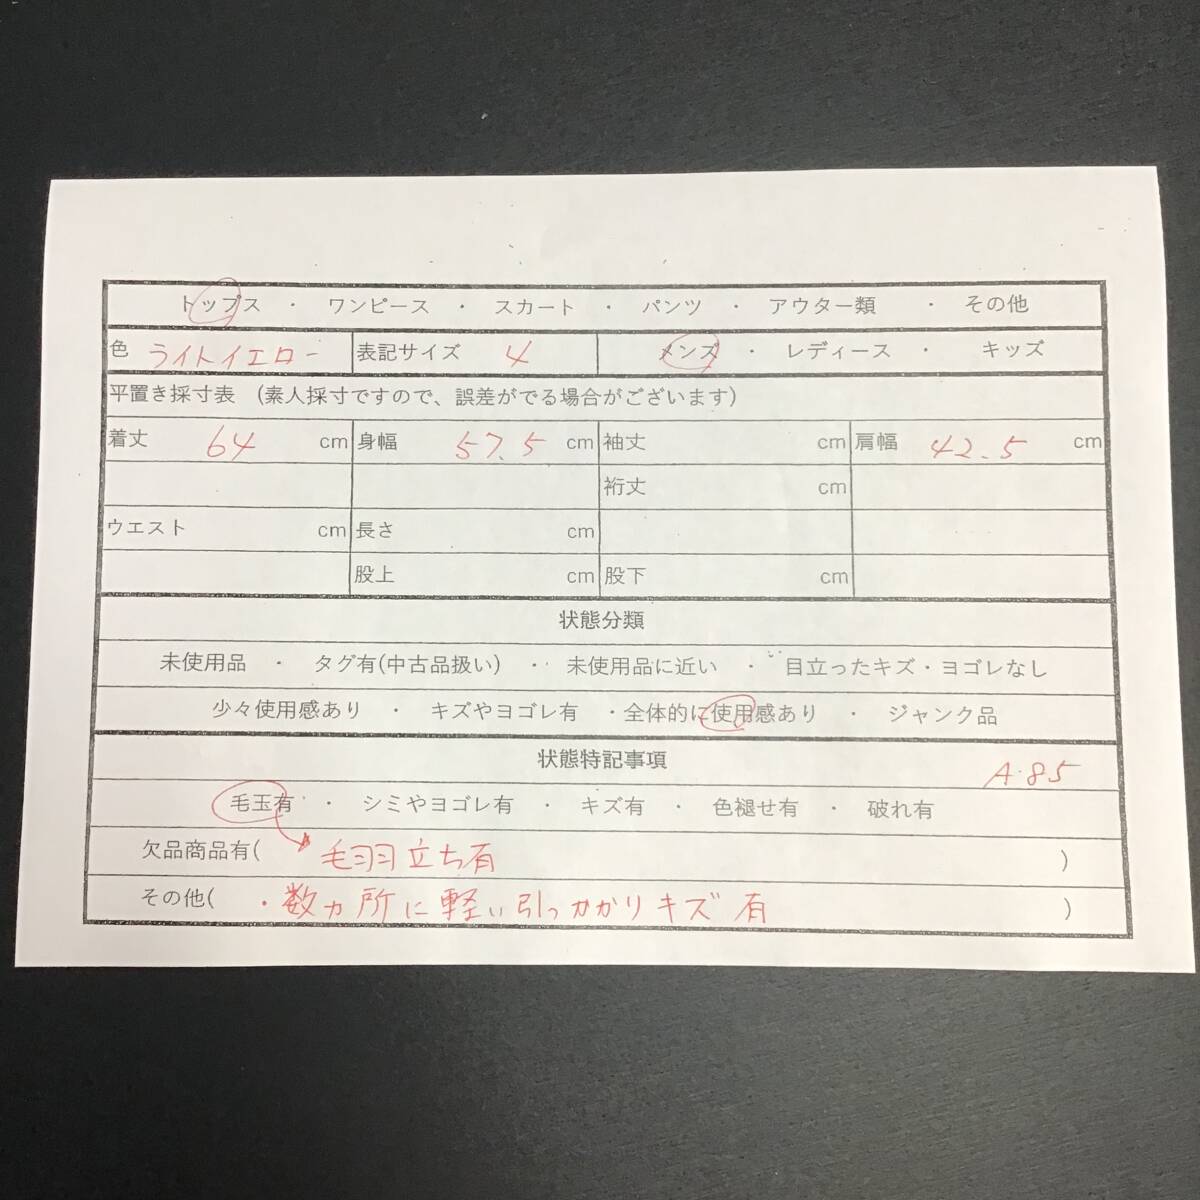 トップス ・ ワンピース ・ スカート ・ パンツ ・ アウター類 ・ その他
色 ライトイエロー 表記サイズ 4 メンズ ・ レディース ・ キッズ
平置き採寸表 (素人採寸ですので、誤差がでる場合がございます)
着丈 64 cm 身幅 57.5 cm 袖丈 cm 肩幅 42.5 cm
裄丈 cm
ウエスト cm 長さ cm
股上 cm 股下 cm
状態分類
未使用品 ・ タグ有(中古品扱い) ・ 未使用品に近い ・ 目立ったキズ・ヨゴレなし
少々使用感あり ・ キズやヨゴレ有 ・全体的に使用感あり ・ ジャンク品
状態特記事項
A・85
毛玉有 ・ シミやヨゴレ有 ・ キズ有 ・ 色褪せ有 ・ 破れ有
欠品商品有( 毛羽立ち有 )
その他( ・数ヵ所に軽い引っかかりキズ有 )